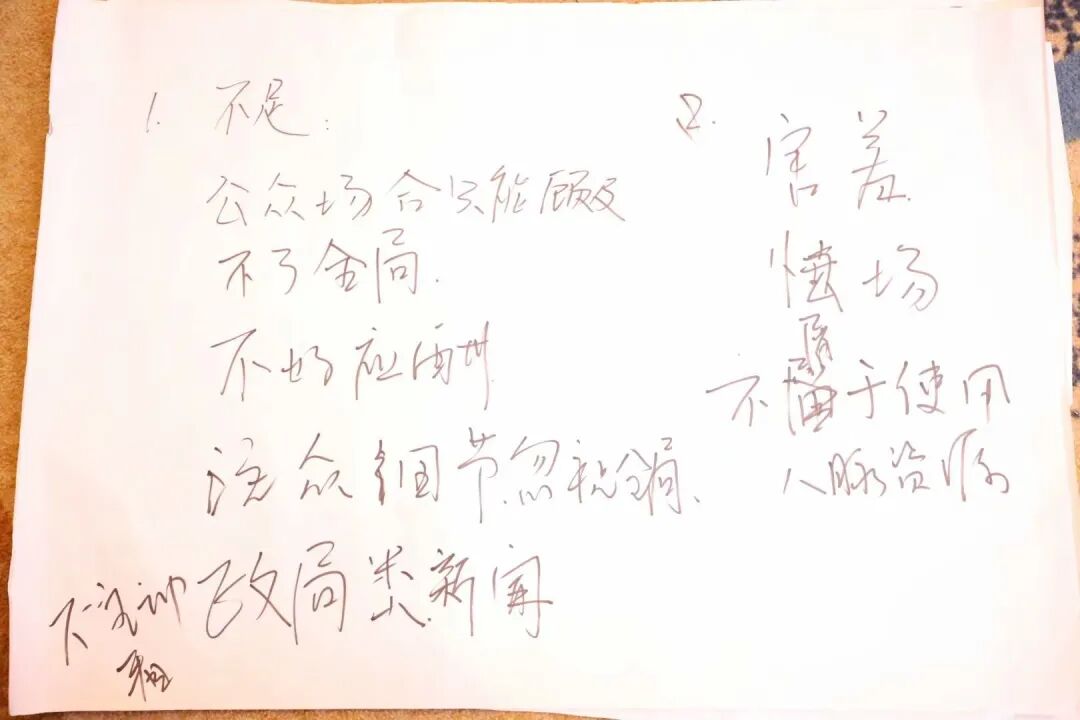 1. 不足:
公众场合只能顾及
不了全局.
不好应酬
注众细节.忽视全局、
政局类新闻
2.
害羞
怯场
不屑于使用
人脉资源